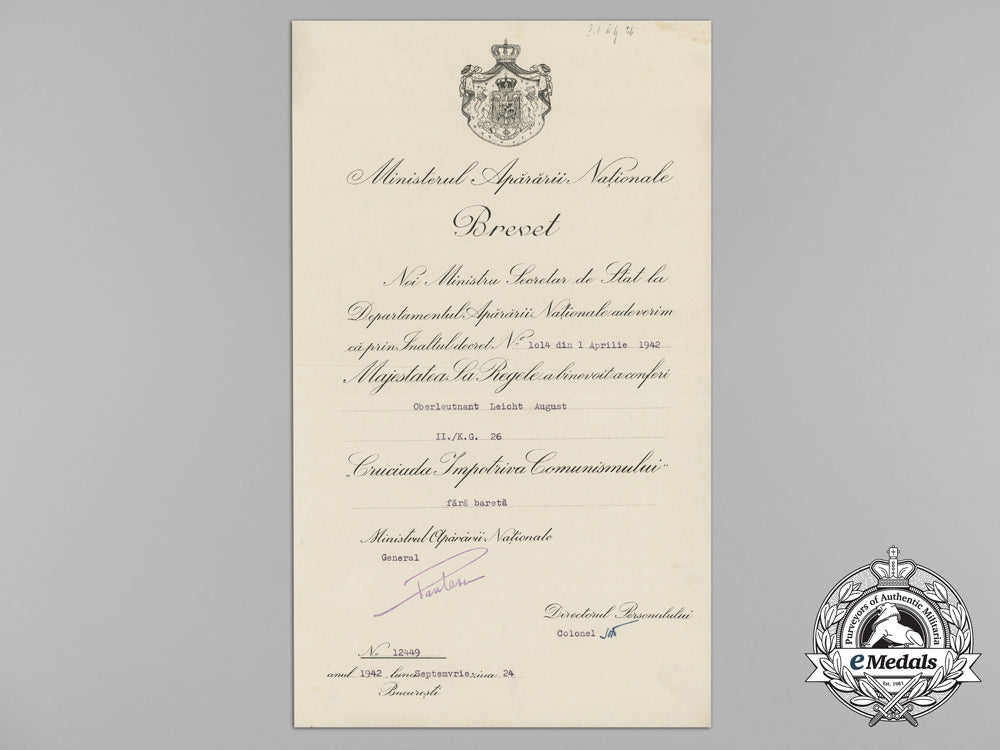 Ministerul Apărării Naţionale
Brevet
Noi Ministru Secretar de Stat la
Departamentul Apărării Naţionale adeverim
că prin Inaltul decret No 1014 din 1 Aprilie 1942
Majestatea Sa Regele a binevoit a conferi
Oberleutnant Leicht August
II./K.G. 26
„Cruciada Impotriva Comunismului”
fără baretă
Ministrul Apărării Naţionale
General
Directorul Personalului
Colonel
No 12449
anul 1942 luna Septemvrie ziua 24
Bucureşti
Purveyors of Authentic Militaria
eMedals
Est. 1981